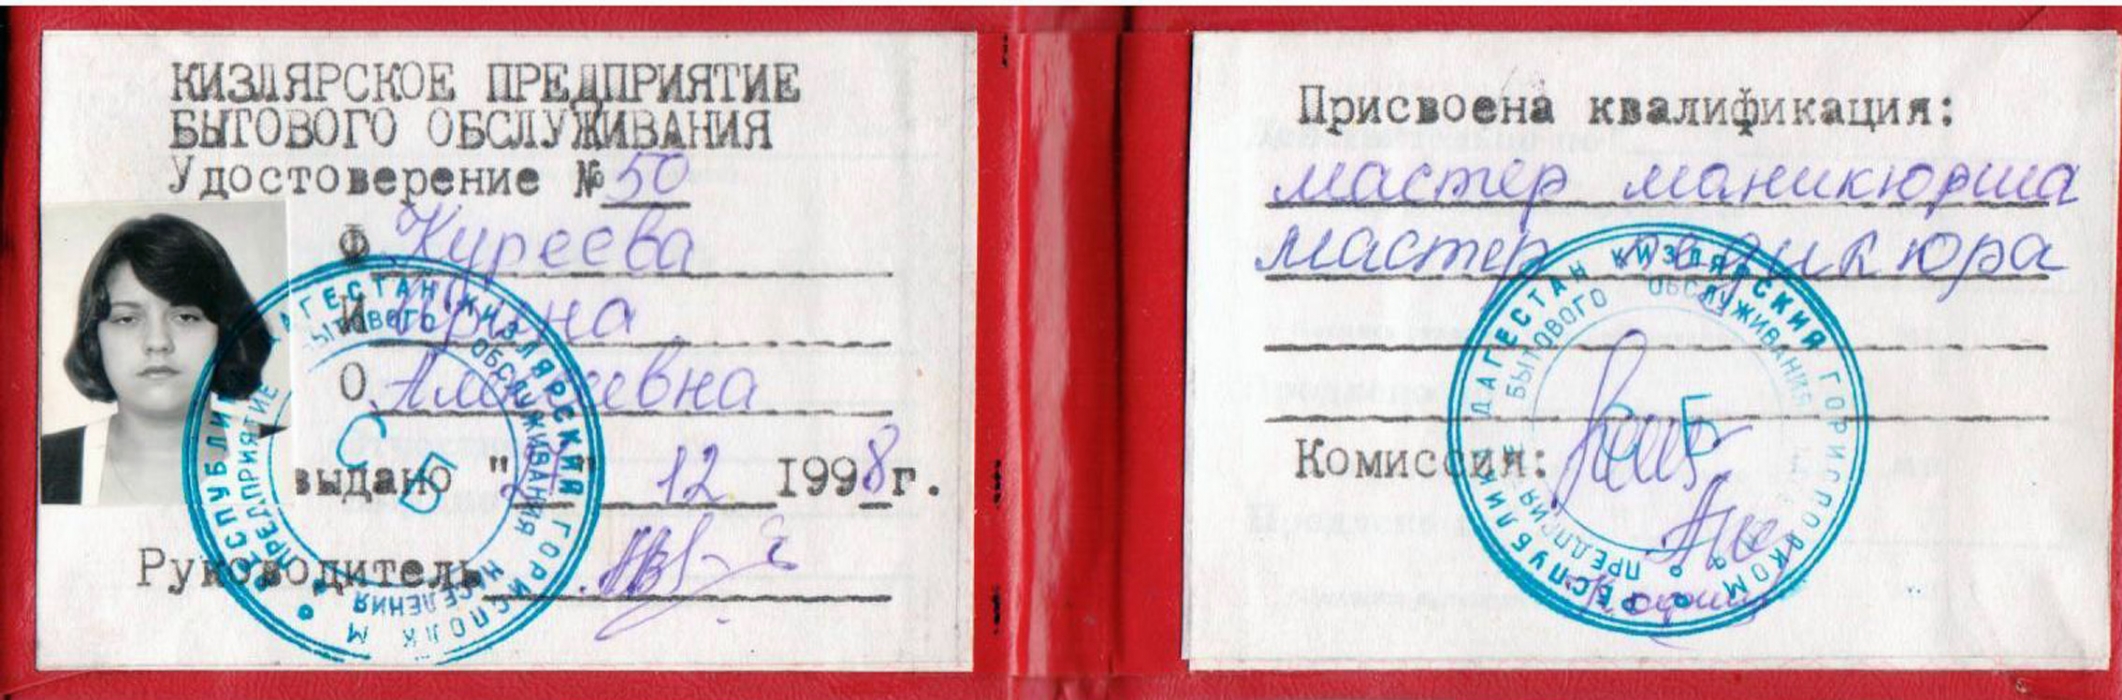 КИЗЛЯРСКОЕ ПРЕДПРИЯТИЕ
БЫТОВОГО ОБСЛУЖИВАНИЯ
Удостоверение № 50
Ф
И Ирина
О. Алексеевна
выдано "27" 12 1998 г.
Руководитель
РЕСПУБЛИКА ДАГЕСТАН КИЗЛЯРСКИЙ ГОРИСПОЛКОМ
ПРЕДПРИЯТИЕ БЫТОВОГО ОБСЛУЖИВАНИЯ НАСЕЛЕНИЯ
С Б
Присвоена квалификация:
мастер маникюрша
мастер педикюра
Комиссия:
РЕСПУБЛИКА ДАГЕСТАН КИЗЛЯРСКИЙ ГОРИСПОЛКОМ
ПРЕДПРИЯТИЕ БЫТОВОГО ОБСЛУЖИВАНИЯ